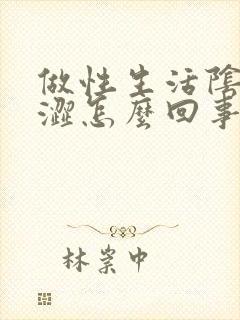 做性生活陰
澀怎麼回事
林崇中